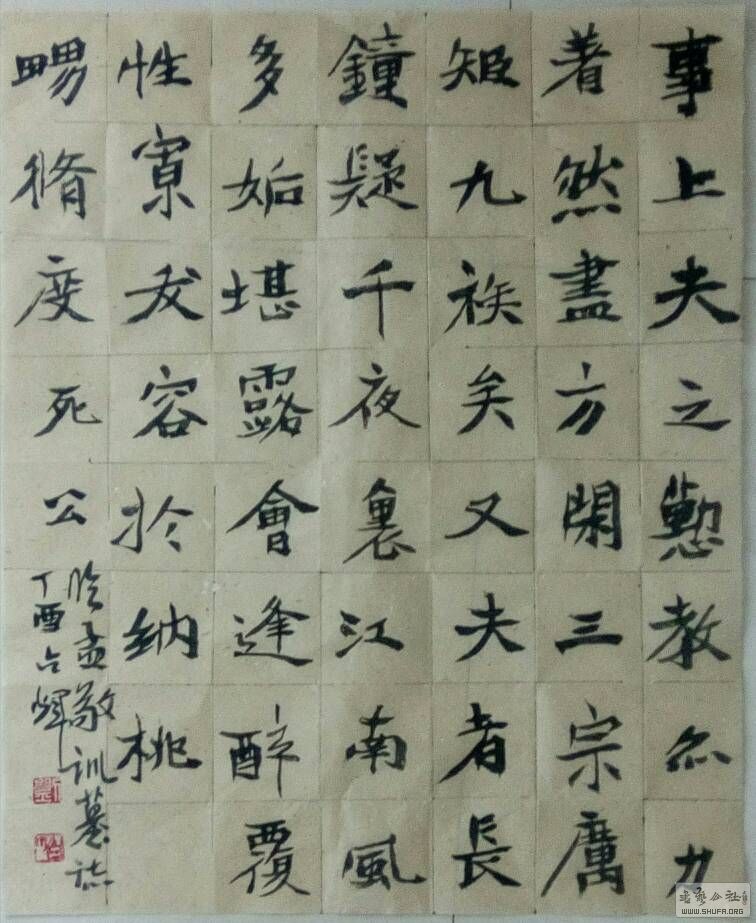 事上夫之懃教尒力
著然盡方閑三宗厲
矩九族矣又夫者長
鐘疑千夜裏江南風
多姤堪露會逢醉覆
性寮友容於納桃
畼脩度死公
臨孟敬訓墓誌
丁酉占輝
WWW.SHUFA.ORG